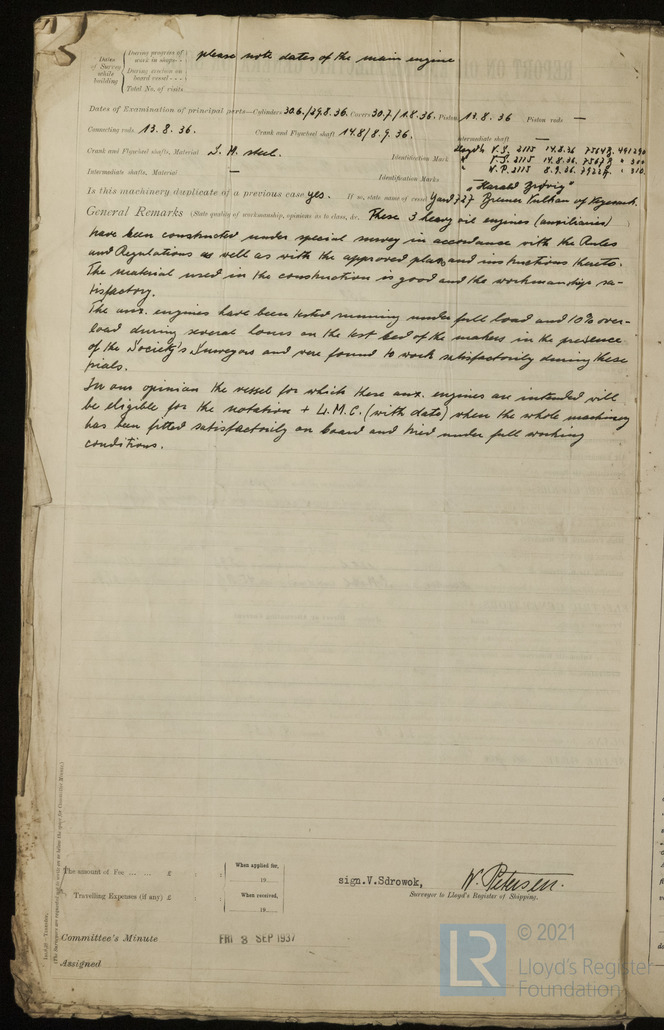 Dates of Survey while building
During progress of work in shops - -
During erection on board vessel - - -
Total No. of visits
please note dates of the main engine
Dates of Examination of principal parts—Cylinders 30.6./29.8.36. Covers 30.7/1.8.36. Pistons 13.8.36 Piston rods —
Connecting rods 13.8.36. Crank and Flywheel shaft 14.8/8.9.36. Intermediate shaft —
Crank and Flywheel shafts, Material S. M. steel. Identification Mark Lloyd's V.S. 2115 14.8.36
" V.S. 2115 14.8.36.
Intermediate shafts, Material — Identification Marks " 8.9.36.
Is this machinery duplicate of a previous case yes. If so, state name of vessel Yard 727 Bremer Vulkan of Vegesack
General Remarks (State quality of workmanship, opinions as to class, &c. These 3 heavy oil engines (auxiliaries)
have been constructed under special survey in accordance with the Rules
and Regulations as well as with the approved plans and instructions thereto.
The material used in the construction is good and the workmanship sa-
tisfactory.
The aux. engines have been tested running under full load and 10% over-
load during several hours on the test bed of the makers in the presence
of the Society's Surveyors and were found to work satisfactorily during these
trials.
In our opinion the vessel for which these aux. engines are intended will
be eligible for the notation + L.M.C. (with date) when the whole machinery
has been fitted satisfactorily on board and tried under full working
conditions.
The amount of Fee ... ... £ : :
When applied for,
19
Travelling Expenses (if any) £ : :
When received,
19
sign.V.Sdrowok, W. Petersen.
Surveyor to Lloyd's Register of Shipping.
Committee's Minute FRI 3 SEP 1937
Assigned
LR © 2021
Lloyd's Register
Foundation